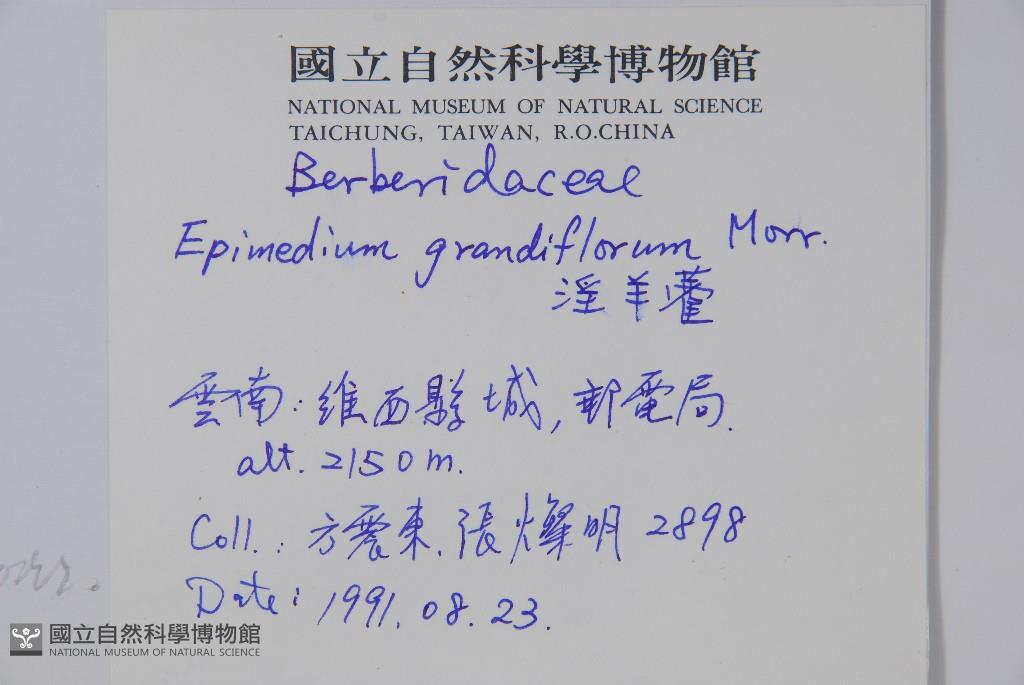 國立自然科學博物館
NATIONAL MUSEUM OF NATURAL SCIENCE
TAICHUNG, TAIWAN, R.O.CHINA
Berberidaceae
Epimedium grandiflorum Morr.
淫羊藿
雲南:維西縣城,郵電局.
alt. 2150m.
Coll.: 方震東.張燦明 2898
Date: 1991.08.23.
國立自然科學博物館
NATIONAL MUSEUM OF NATURAL SCIENCE